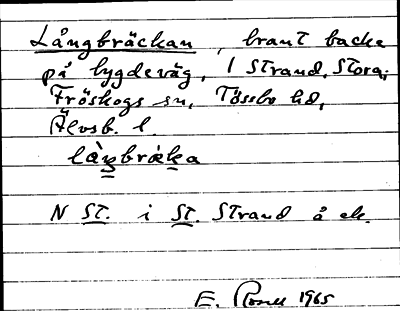 Långbräckan, brant backe
på bygdeväg, i Strand, Stora;
Fröskogs sn, Tössbo hd,
Älvsb. l.
N St. i St. Strand å ek.
E. 1965